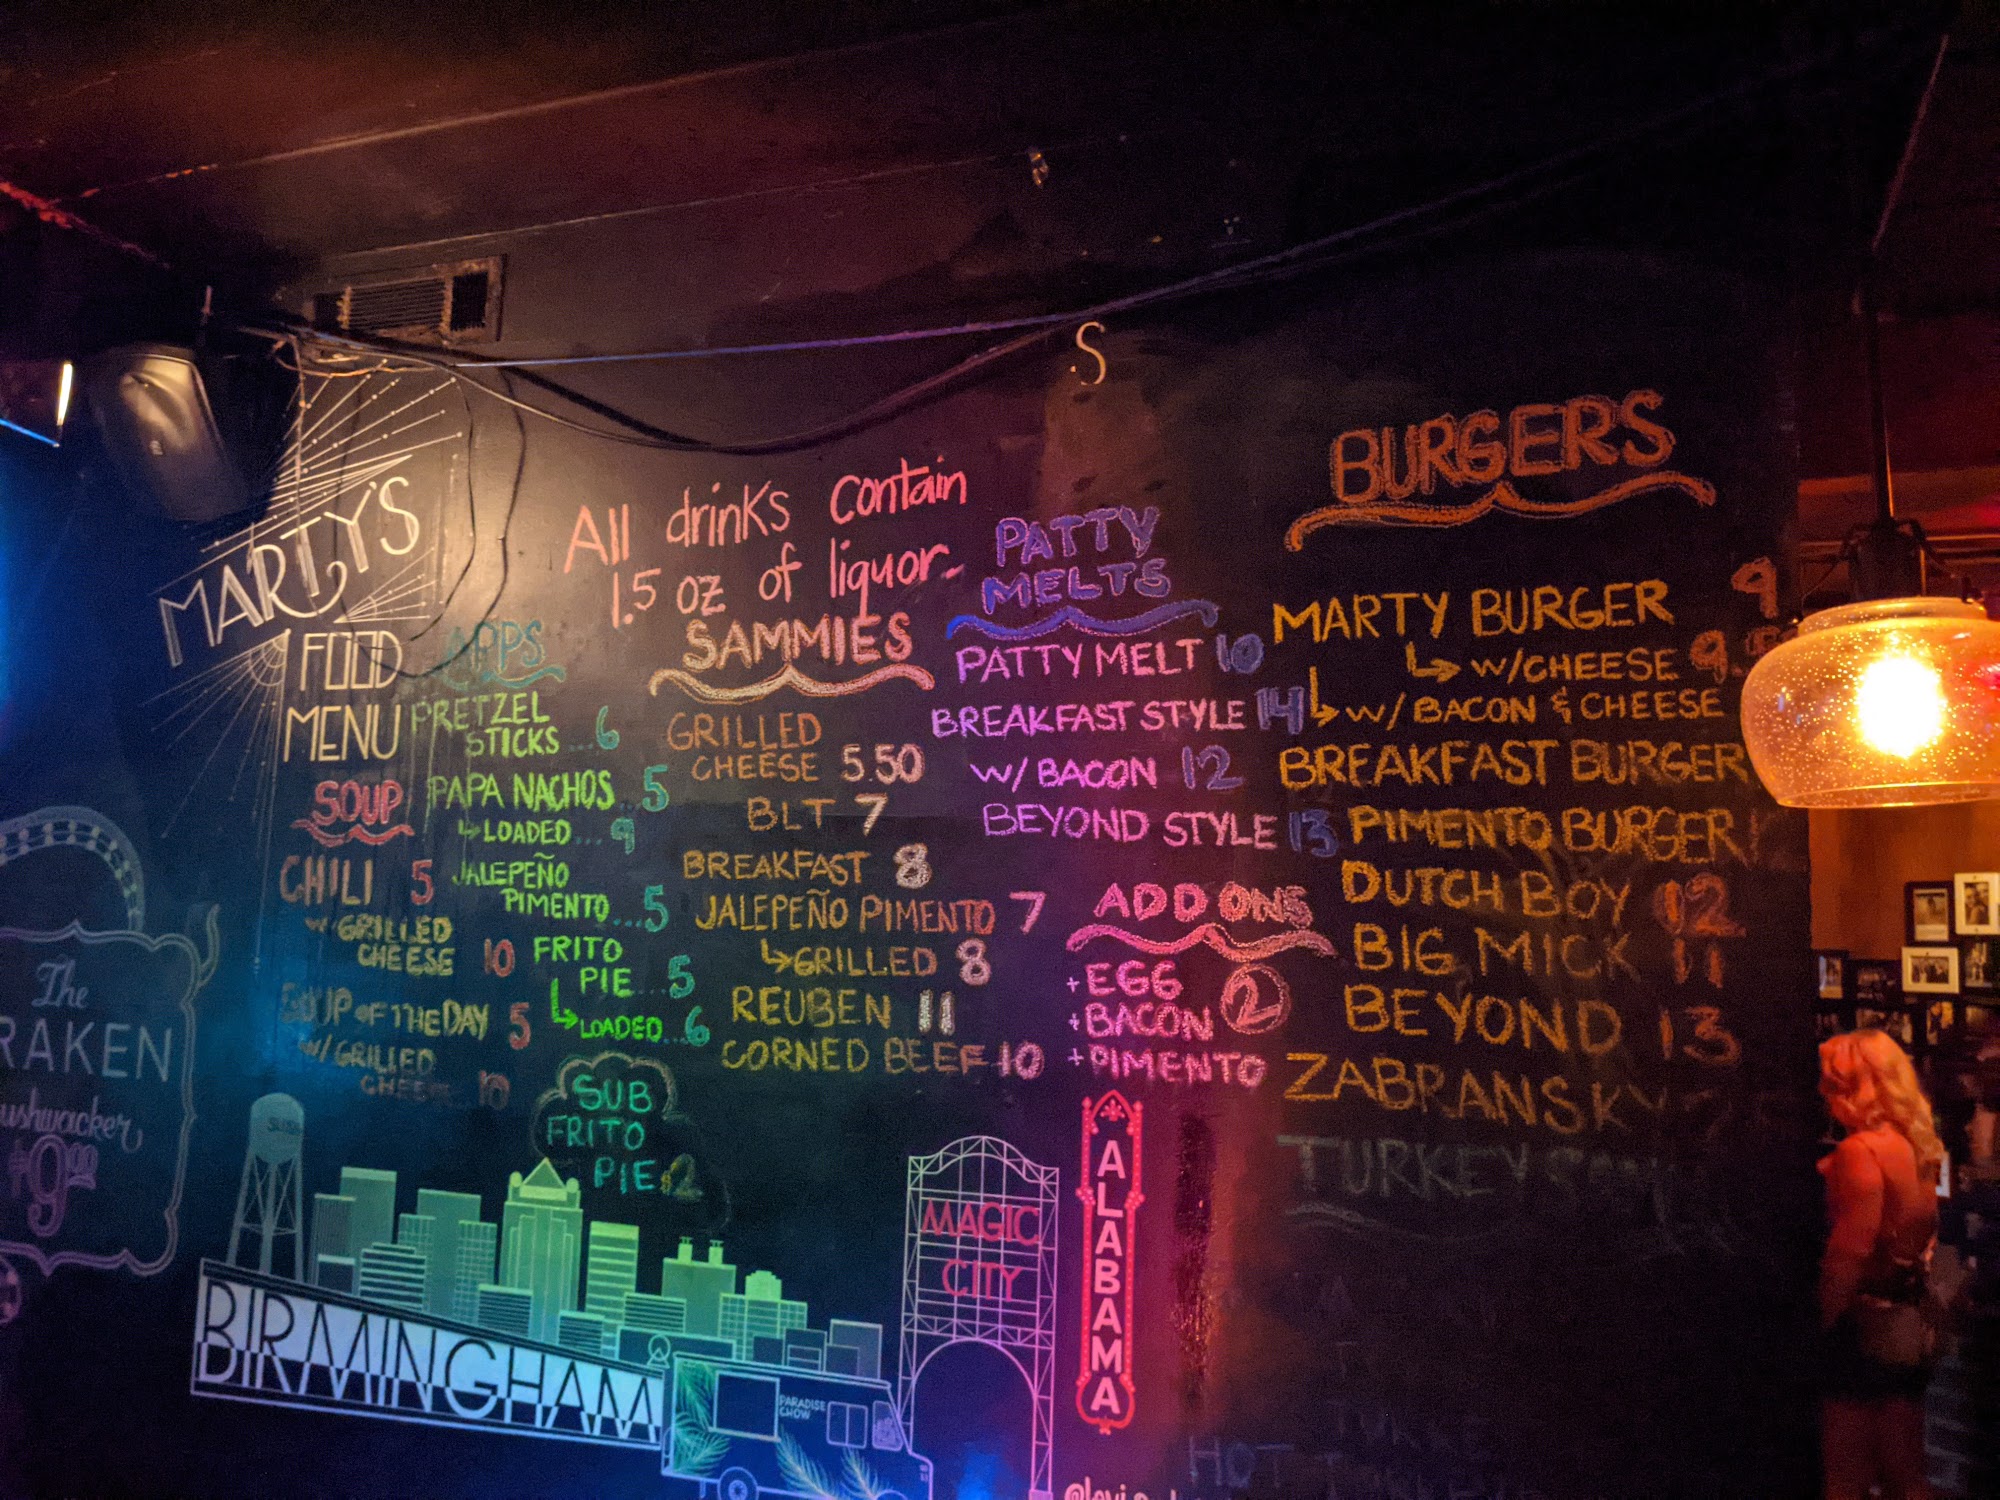 MARTY'S
FOOD
MENU
SOUP
CHILI 5
W/ GRILLED
CHEESE 10
SOUP OF THE DAY 5
W/ GRILLED
CHEESE 10
APPS
PRETZEL
STICKS ... 6
PAPA NACHOS 5
LOADED ... 9
JALEPEÑO
PIMENTO ... 5
FRITO
PIE ... 5
LOADED ... 6
SUB
FRITO
PIE $2
All drinks contain
1.5 oz of liquor
SAMMIES
GRILLED
CHEESE 5.50
BLT 7
BREAKFAST 8
JALEPEÑO PIMENTO 7
GRILLED 8
REUBEN 11
CORNED BEEF 10
.S
PATTY
MELTS
PATTY MELT 10
BREAKFAST STYLE 14
W/ BACON 12
BEYOND STYLE 13
ADD ONS
+ EGG
+ BACON 2
+ PIMENTO
BURGERS
MARTY BURGER 9
W/ CHEESE 9
W/ BACON & CHEESE
BREAKFAST BURGER
PIMENTO BURGER
DUTCH BOY 12
BIG MICK 11
BEYOND 13
ZABRANSKY
TURKEY
HOT
The
RAKEN
ushwacker
$9.00
BIRMINGHAM
PARADISE
CHOW
MAGIC
CITY
ALABAMA